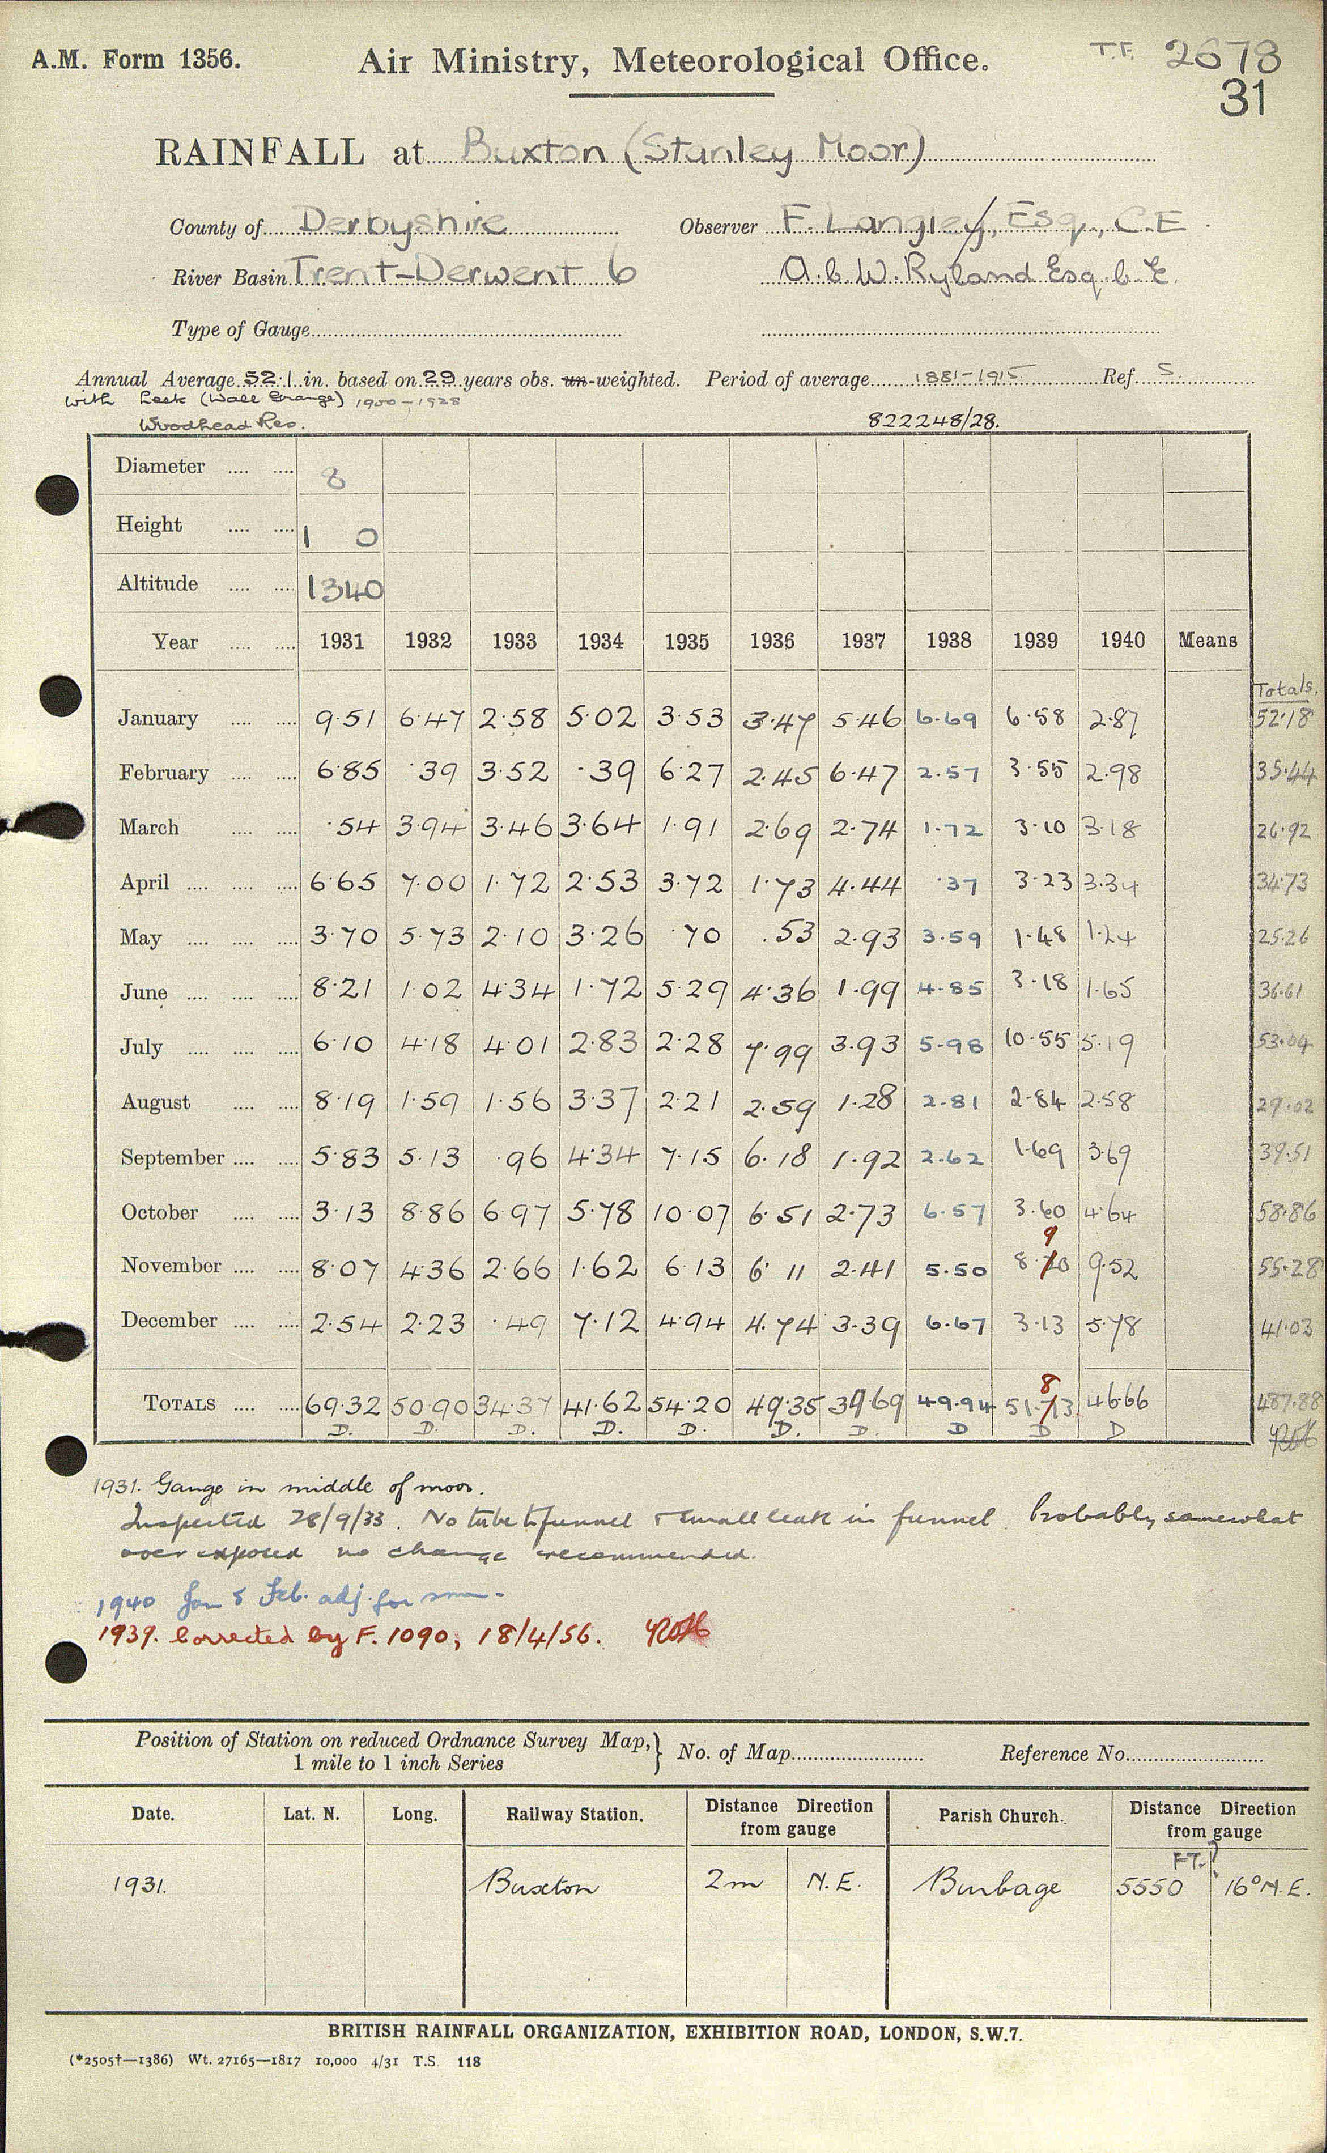 A.M. Form 1356. Air Ministry, Meteorological Office. T.F. 2673
31
RAINFALL at Buxton (Stanley Moor)
County of Derbyshire Observer F. Langley, Esq., C.E
River Basin Trent-Derwent 6 A.C.W. Ryland Esq. C.E.
Type of Gauge
Annual Average 52.1 in. based on 29 years obs. un-weighted. Period of average 1881-1915 Ref S.
with Leek (Wall Grange) 1900-1928
Woodhead Res. 822248/28.
Diameter 8
Height 1 0
Altitude 1340
Year 1931 1932 1933 1934 1935 1936 1937 1938 1939 1940 Means
Totals.
January 9.51 6.47 2.58 5.02 3.53 3.47 5.46 6.69 6.58 2.87 52.18
February 6.85 .39 3.52 .39 6.27 2.45 6.47 2.57 3.55 2.98 35.44
March .54 3.94 3.46 3.64 1.91 2.69 2.74 1.72 3.10 3.18 26.92
April 6.65 7.00 1.72 2.53 3.72 1.73 4.44 .37 3.23 3.34 34.73
May 3.70 5.73 2.10 3.26 .70 .53 2.93 3.59 1.48 1.24 25.26
June 8.21 1.02 4.34 1.72 5.29 4.36 1.99 4.85 3.18 1.65 36.61
July 6.10 4.18 4.01 2.83 2.28 7.99 3.93 5.98 10.55 5.19 53.04
August 8.19 1.59 1.56 3.37 2.21 2.59 1.28 2.81 2.84 2.58 29.02
September 5.83 5.13 .96 4.34 7.15 6.18 1.92 2.62 1.69 3.69 39.51
October 3.13 8.86 6.97 5.78 10.07 6.51 2.73 6.57 3.60 4.64 58.86
9
November 8.07 4.36 2.66 1.62 6.13 6.11 2.41 5.50 8.70 9.52 55.28
December 2.54 2.23 .49 7.12 4.94 4.74 3.39 6.67 3.13 5.78 41.03
8
TOTALS 69.32 50.90 34.37 41.62 54.20 49.35 39.69 49.94 51.73 46.66 487.88
D. D. D. D. D. D. D. D D D
1931. Gauge in middle of moor.
Inspected 28/9/33. No tube to funnel & small leak in funnel. Probably somewhat
over exposed no change recommended.
1940 Jan & Feb. adj. for snow.
1939. Corrected by F. 1090, 18/4/56.
Position of Station on reduced Ordnance Survey Map, 1 mile to 1 inch Series } No. of Map Reference No.
Date. Lat. N. Long. Railway Station. Distance Direction from gauge Parish Church. Distance Direction from gauge
FT. ?
1931. Buxton 2m N.E. Burbage 5550 16° N.E.
BRITISH RAINFALL ORGANIZATION, EXHIBITION ROAD, LONDON, S.W.7.
(*2505†—1386) Wt. 27165—1817 10,000 4/31 T.S. 118